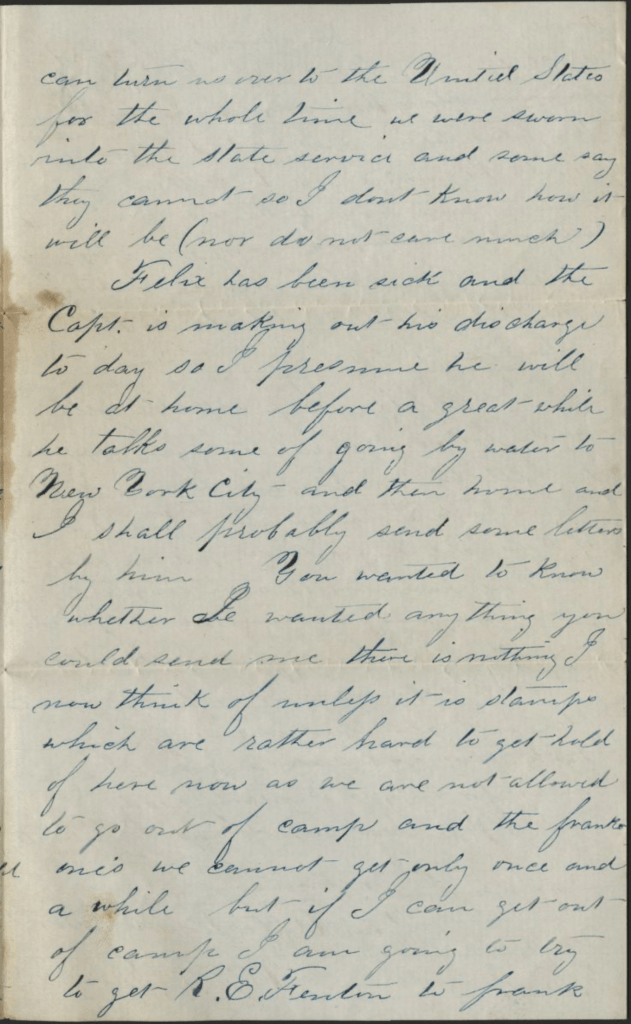 can turn us over to the United States
for the whole time we were sworn
into the state service and some say
they cannot so I dont know how it
will be (nor do not care much)
Felix has been sick and the
Capt. is making out his discharge
to day so I presume he will
be at home before a great while
he talks some of going by water to
New York City and then home and
I shall probably send some letters
by him You wanted to know
whether I wanted anything you
could send me there is nothing I
now think of unless it is stamps
which are rather hard to get hold
of here now as we are not allowed
to go out of camp and the franked
ones we cannot get only once and
a while but if I can get out
of camp I am going to try
to get R. E. Fenton to frank